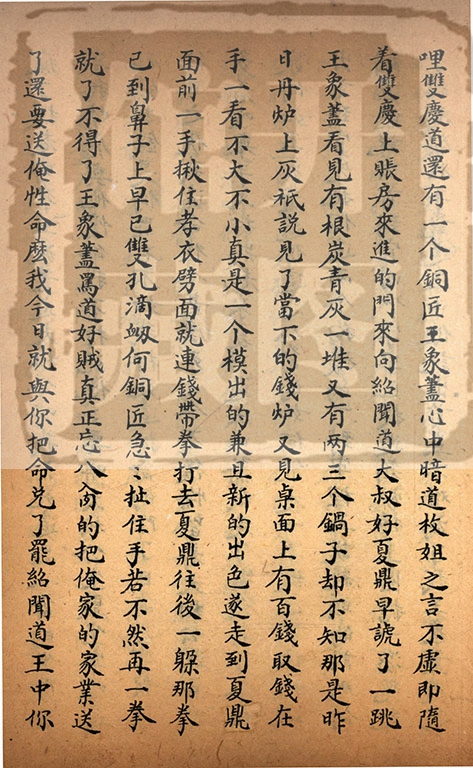 哩雙慶道還有一个銅匠王象藎心中暗道枚姐之言不虛即隨
着雙慶上賬房來進的門來向紹聞道大叔好夏鼎早諕了一跳
王象藎看見有根炭青灰一堆又有两三个鍋子却不知那是昨
日丹炉上灰祇説見了當下的錢炉又見桌面上有百錢取錢在
手一看不大不小真是一个模出的兼且新的出色遂走到夏鼎
面前一手揪住孝衣劈面就連錢帶拳打去夏鼎往後一躱那拳
已到鼻子上早已雙孔滴衂何銅匠急〻扯住手若不然再一拳
就了不得了王象藎罵道好賊真正忘八肏的把俺家的家業送
了還要送俺性命麽我今日就與你把命兑了罷紹聞道王中你